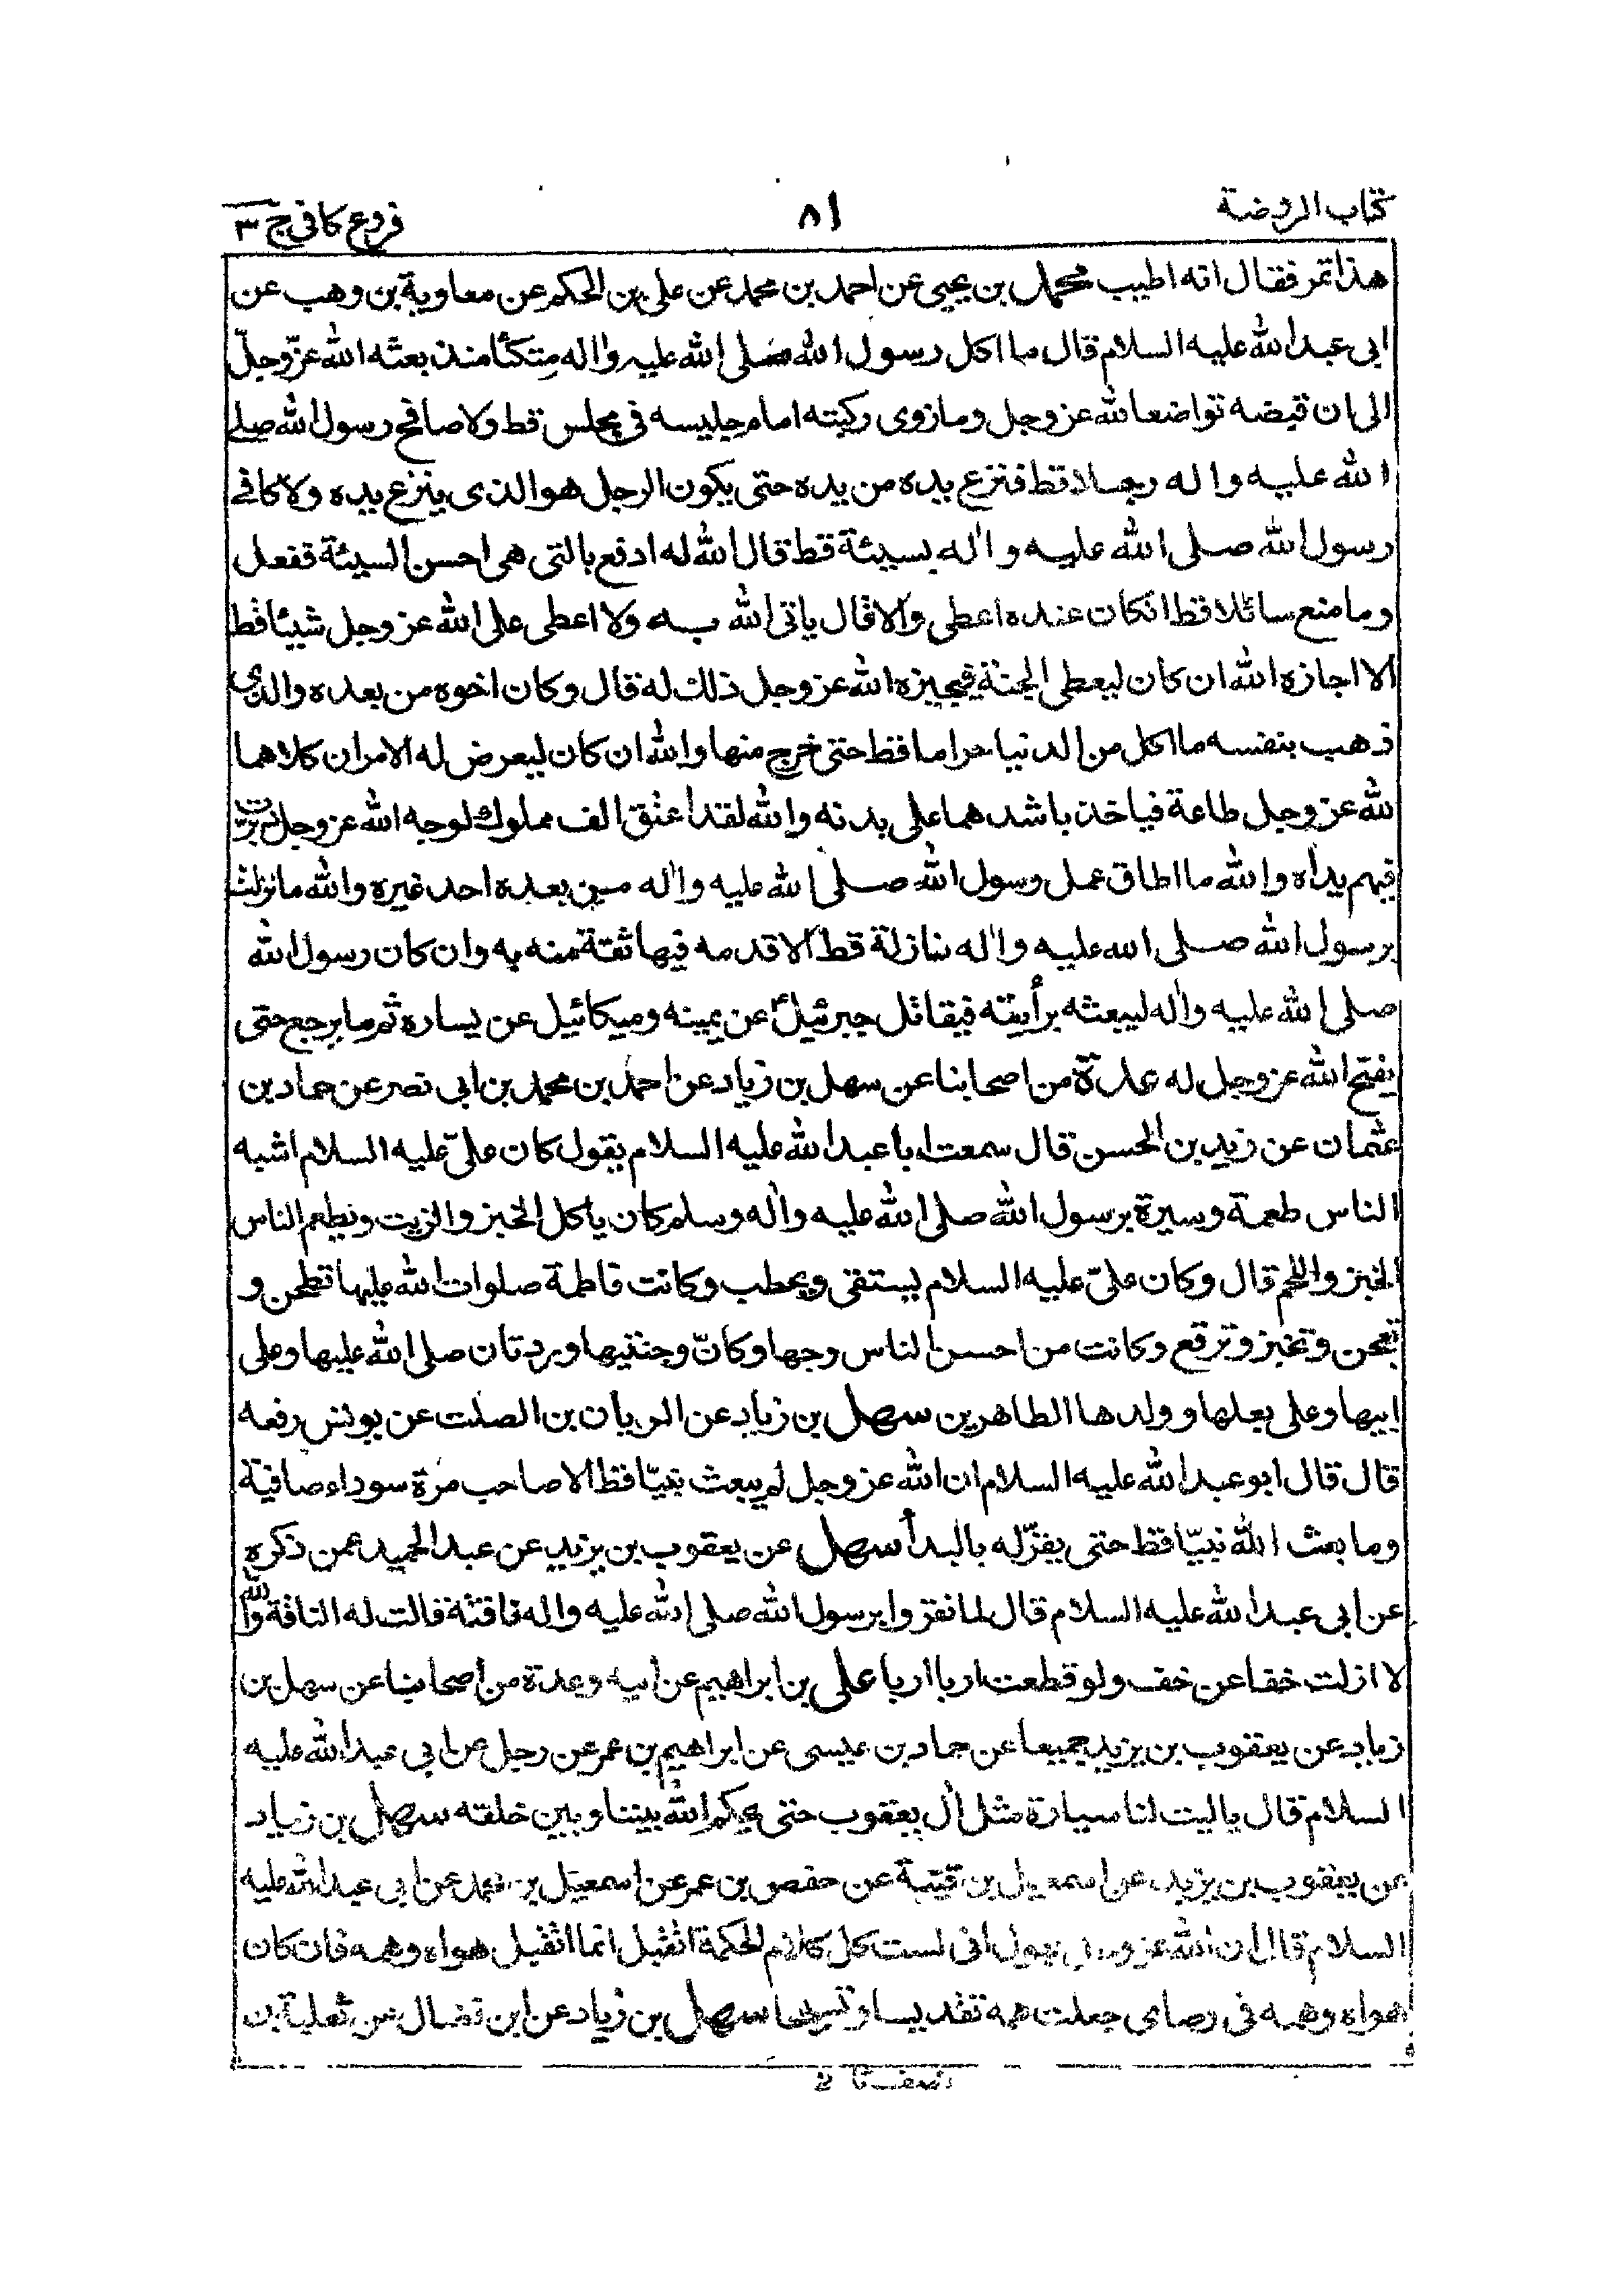 كتاب الروضة
٨١
فروع كافى ج ٣
هذا تمر فقال انه اطيب محمد بن يحيى عن احمد بن محمد عن على بن الحكم عن معاوية بن وهب عن
ابى عبد الله عليه السلام قال ما اكل رسول الله صلى الله عليه واله متكئا منذ بعثه الله عزّوجلّ
الى ان قبضه تواضعا لله عز وجل وما زوى ركبته امام جليسه فى مجلس قط ولا صافح رسول الله صلى
الله عليه واله رجلا قط فنزع يده من يده حتى يكون الرجل هو الذى ينزع يده ولا كافى
رسول الله صلى الله عليه واله بسيئة قط قال الله له ادفع بالتى هى احسن السيئة ففعل
وما منع سائلا قط انكان عنده اعطى والا قال ياتى الله به ولا اعطى على الله عز وجل شيئا قط
الا اجازه الله ان كان ليعطى الجنة فيجيزه الله عز وجل ذلك له قال وكان اخوه من بعده والذى
ذهب بنفسه ما اكل من الدنيا حراما قط حتى خرج منها والله ان كان ليعرض له الامران كلاهما
لله عز وجل طاعة فياخذ باشدهما على بدنه والله لقد اعتق الف مملوك لوجه الله عز وجل دبرت
فيهم يداه والله ما اطاق عمل رسول الله صلى الله عليه واله من بعده احد غيره والله ما نزلت
برسول الله صلى الله عليه واله نازلة قط الا قدمه فيها ثقة منه به وان كان رسول الله
صلى الله عليه واله ليبعثه برأيته فيقاتل جبرئيل عن يمينه وميكائيل عن يساره ثم ما يرجع حتى
يفتح الله عز وجل له عدة من اصحابنا عن سهل بن زياد عن احمد بن محمد بن ابى نصر عن حماد بن
عثمان عن زيد بن الحسن قال سمعت ابا عبد الله عليه السلام يقول كان علىّ عليه السلام اشبه
الناس طعمة وسيرة برسول الله صلى الله عليه واله وسلم كان ياكل الخبز والزيت ويطعم الناس
الخبز واللحم قال وكان علىّ عليه السلام يستقى ويحطب وكانت فاطمة صلوات الله عليها تطحن و
تعجن وتخبز وترقع وكانت من احسن الناس وجها وكانّ وجنتيها وردتان صلى الله عليها وعلى
ابيها وعلى بعلها وولدها الطاهرين سهل بن زياد عن الريان بن الصلت عن يونس رفعه
قال قال ابو عبد الله عليه السلام ان الله عز وجل لم يبعث نبيّا قط الا صاحب مرّة سوداء صافية
وما بعث الله نبيّا قط حتى يقرّ له بالبدأ سهل عن يعقوب بن يزيد عن عبد الحميد عمن ذكره
عن ابى عبد الله عليه السلام قال لما نفروا برسول الله صلى الله عليه واله ناقته قالت له الناقة والله
لا ازلت خفا عن خف ولو قطعت اربا اربا على بن ابراهيم عن ابيه وعدة من اصحابنا عن سهل بن
زياد عن يعقوب بن يزيد جميعا عن حماد بن عيسى عن ابراهيم بن عمر عن رجل عن ابى عبد الله عليه
السلام قال ياليت لنا سيارة مثل ال يعقوب حتى يحكم الله بيننا وبين خلقه سهل بن زياد
عن يعقوب بن يزيد عن اسمعيل بن قتيبة عن حفص بن عمر عن اسمعيل بن محمد عن ابى عبد الله عليه
السلام قال ان الله عز وجل يقول انى لست كل كلام الحكمة اتقبل انما اتقبل هواه وهمه فان كان
هواه وهمه فى رضاى جعلت همه تقديسا وتسبيحا سهل بن زياد عن ابن فضال عن ثعلبة بن